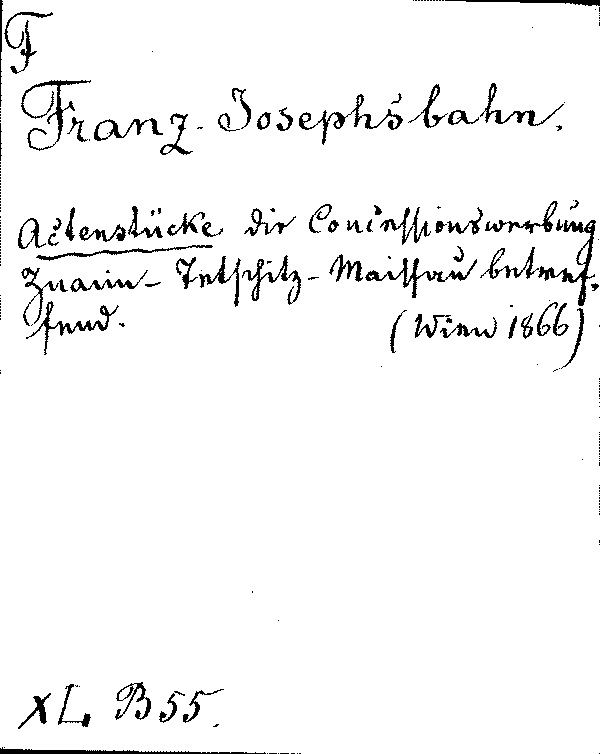 F
Franz-Josephsbahn.
Actenstücke die Concessionswerbung
Znaim - Tetschitz - Maissau betref-
fend. (Wien 1866)
XL B 55.